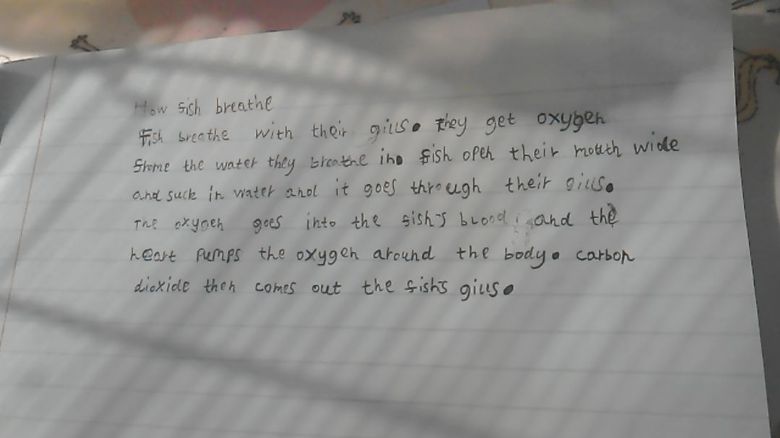 How fish breathe
Fish breathe with their gills. They get oxygen
frome the water they breathe in. fish open their mouth wide
and suck in water and it goes through their gills.
The oxygen goes into the fish's blood and the
heart pumps the oxygen around the body. carbon
dioxide then comes out the fish's gills.